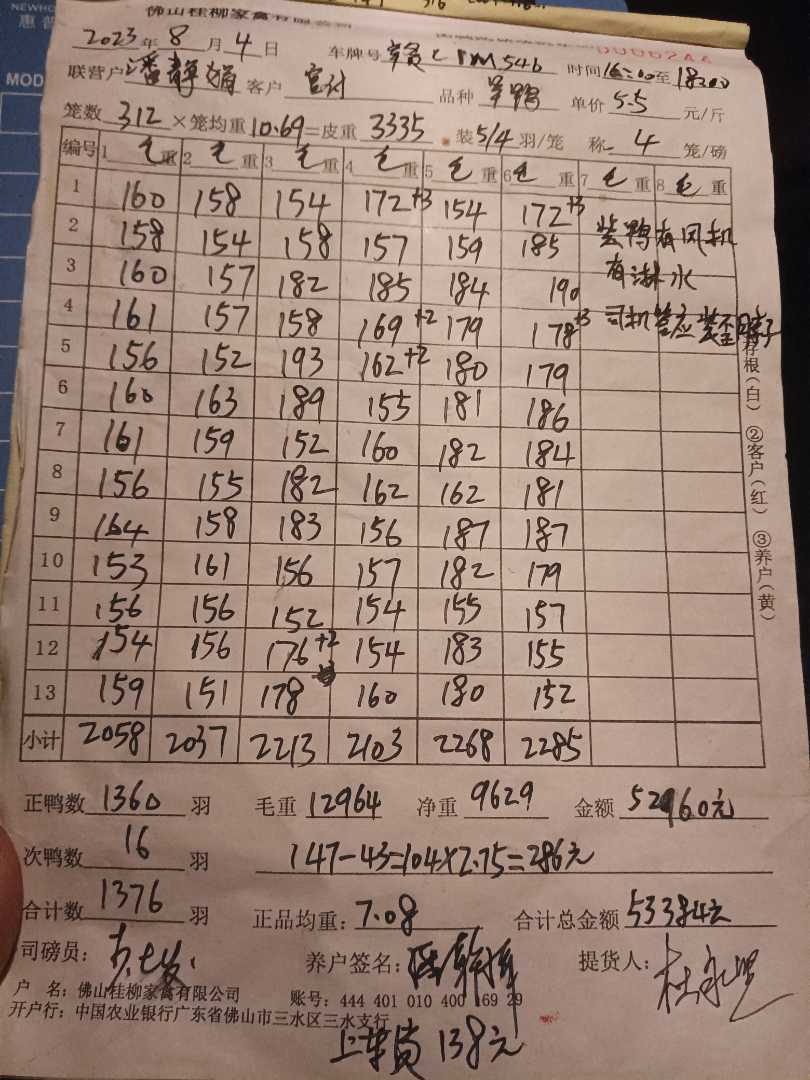 佛山桂柳家禽有限公司
2023年8月4日 车牌号 时间16:00至18:00
联营户潘静娟 客户 品种 单价5.5元/斤
笼数312×笼均重10.69=皮重3335 装5/4羽/笼 称4笼/磅
编号 1毛重 2毛重 3毛重 4毛重 5毛重 6毛重 7毛重 8毛重
1 160 158 154 172+3 154 172+3
2 158 154 158 157 159 185 装鸭有风机
3 160 157 182 185 184 190 有淋水
4 161 157 158 169+2 179 178+3 司机答应装
5 156 152 193 162+2 180 179
6 160 163 189 155 181 186
7 161 159 152 160 182 184
8 156 155 182 162 162 181
9 164 158 183 156 187 187
10 153 161 156 157 182 179
11 156 156 152 154 155 157
12 154 156 176+2 154 183 155
13 159 151 178 160 180 152
小计 2058 2037 2213 2103 2268 2285
存根(白) ②客户(红) ③养户(黄)
正鸭数1360羽 毛重12964 净重9629 金额52960元
次鸭数16羽 147-43=104×2.75=286元
合计数1376羽 正品均重:7.08 合计总金额53384元
司磅员: 养户签名: 提货人:
户 名:佛山桂柳家禽有限公司 账号:444 401 010 400 169 29
开户行:中国农业银行广东省佛山市三水区三水支行
上车费138元